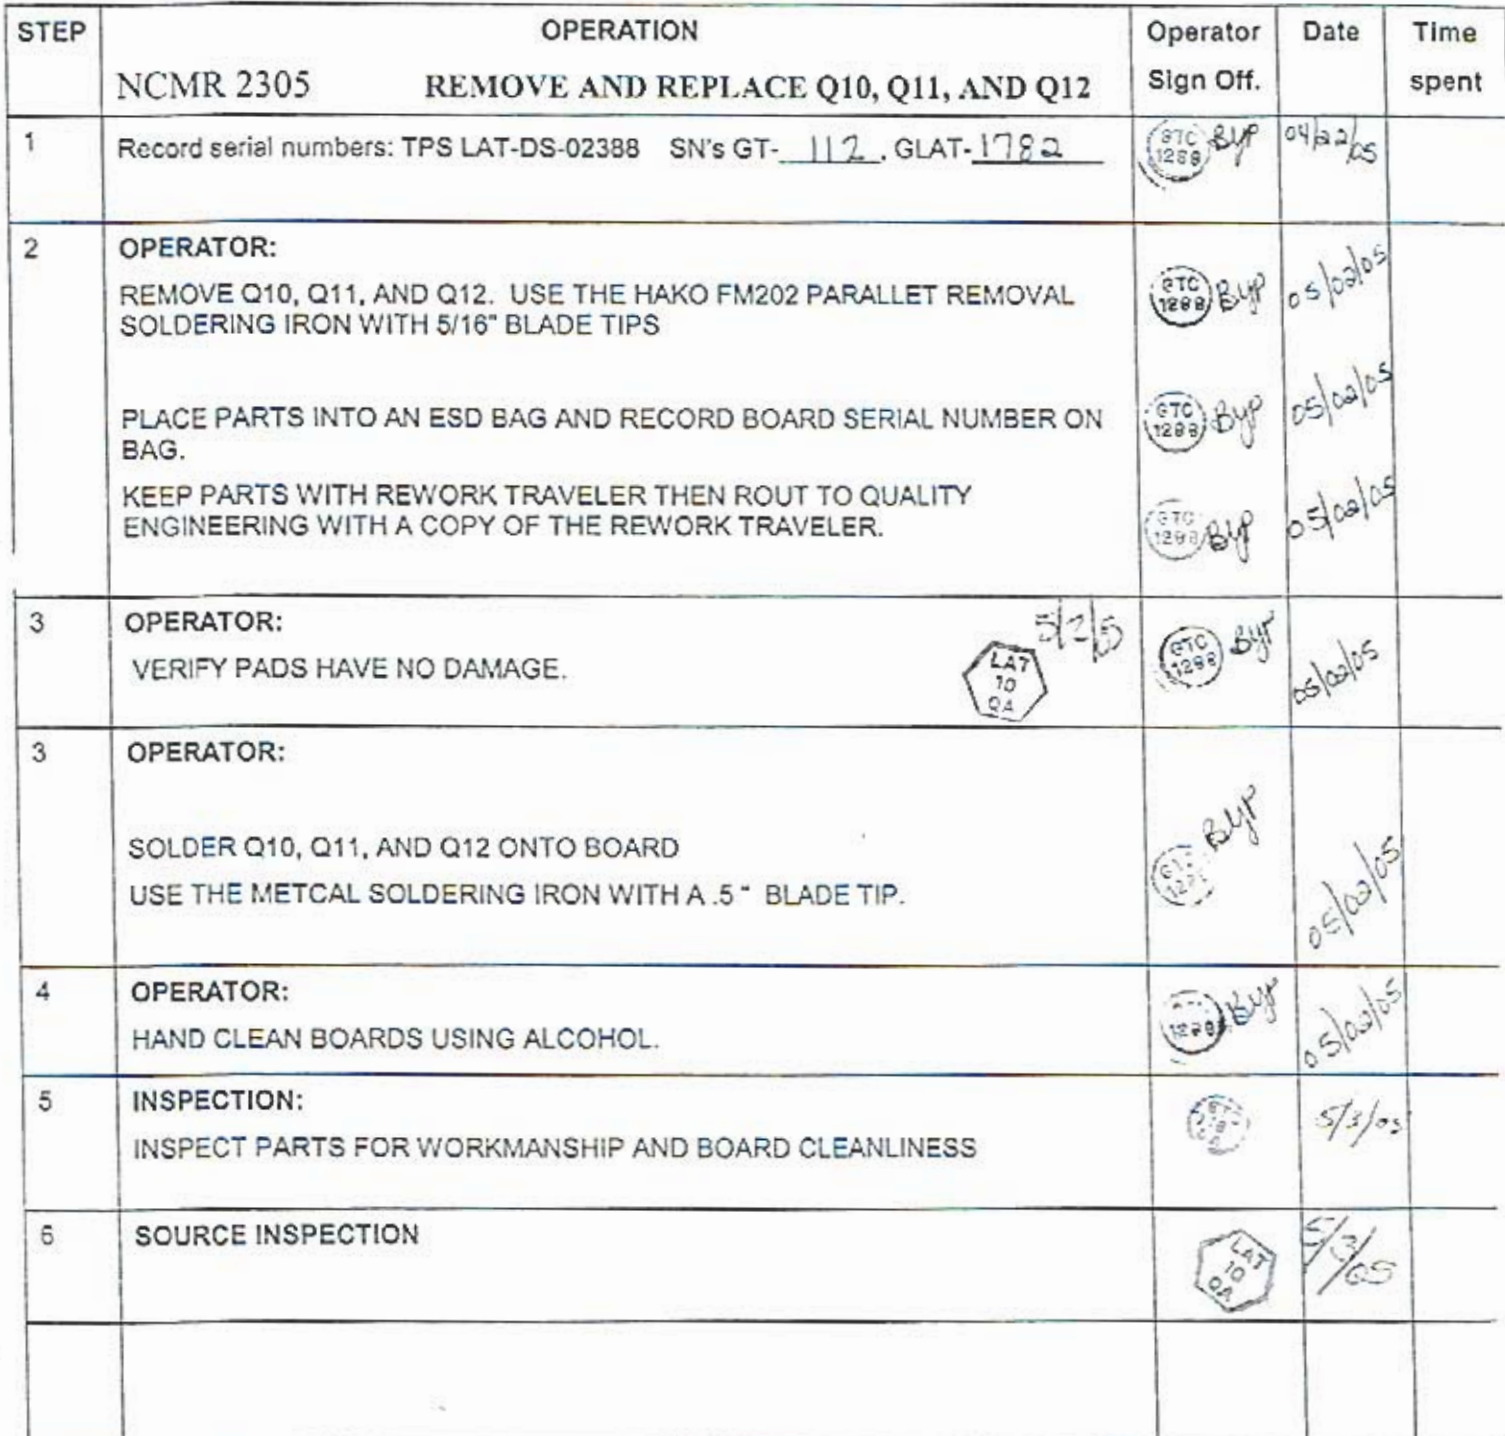 STEP OPERATION Operator Date Time
Sign Off. spent
NCMR 2305 REMOVE AND REPLACE Q10, Q11, AND Q12
1 Record serial numbers: TPS LAT-DS-02388 SN's GT- 112 . GLAT- 1782 GTC 1288 Byp 04/22/05
2 OPERATOR:
REMOVE Q10, Q11, AND Q12. USE THE HAKO FM202 PARALLET REMOVAL
SOLDERING IRON WITH 5/16" BLADE TIPS
GTC 1288 Byp 05/02/05
PLACE PARTS INTO AN ESD BAG AND RECORD BOARD SERIAL NUMBER ON
BAG.
GTC 1288 Byp 05/02/05
KEEP PARTS WITH REWORK TRAVELER THEN ROUT TO QUALITY
ENGINEERING WITH A COPY OF THE REWORK TRAVELER.
GTC 1288 Byp 05/02/05
3 OPERATOR:
VERIFY PADS HAVE NO DAMAGE.
LAT 10 QA 5/2/5 GTC 1288 Byp 05/02/05
3 OPERATOR:
SOLDER Q10, Q11, AND Q12 ONTO BOARD
USE THE METCAL SOLDERING IRON WITH A .5 " BLADE TIP.
Byp 05/02/05
4 OPERATOR:
HAND CLEAN BOARDS USING ALCOHOL.
1288 Byp 05/02/05
5 INSPECTION:
INSPECT PARTS FOR WORKMANSHIP AND BOARD CLEANLINESS
5/3/05
6 SOURCE INSPECTION
LAT 10 QA 5/3/05